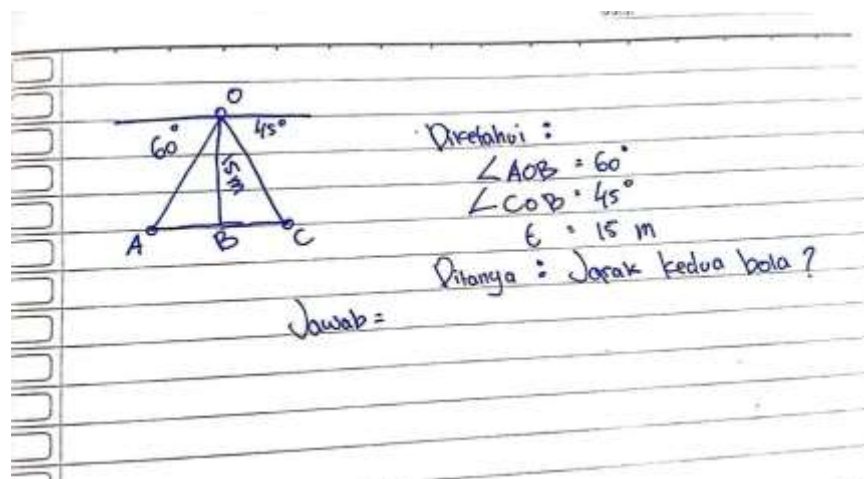 O
60° 45°
15 m
A B C
Diketahui :
∠AOB = 60°
∠COB = 45°
t = 15 m
Ditanya : Jarak kedua bola ?
Jawab =